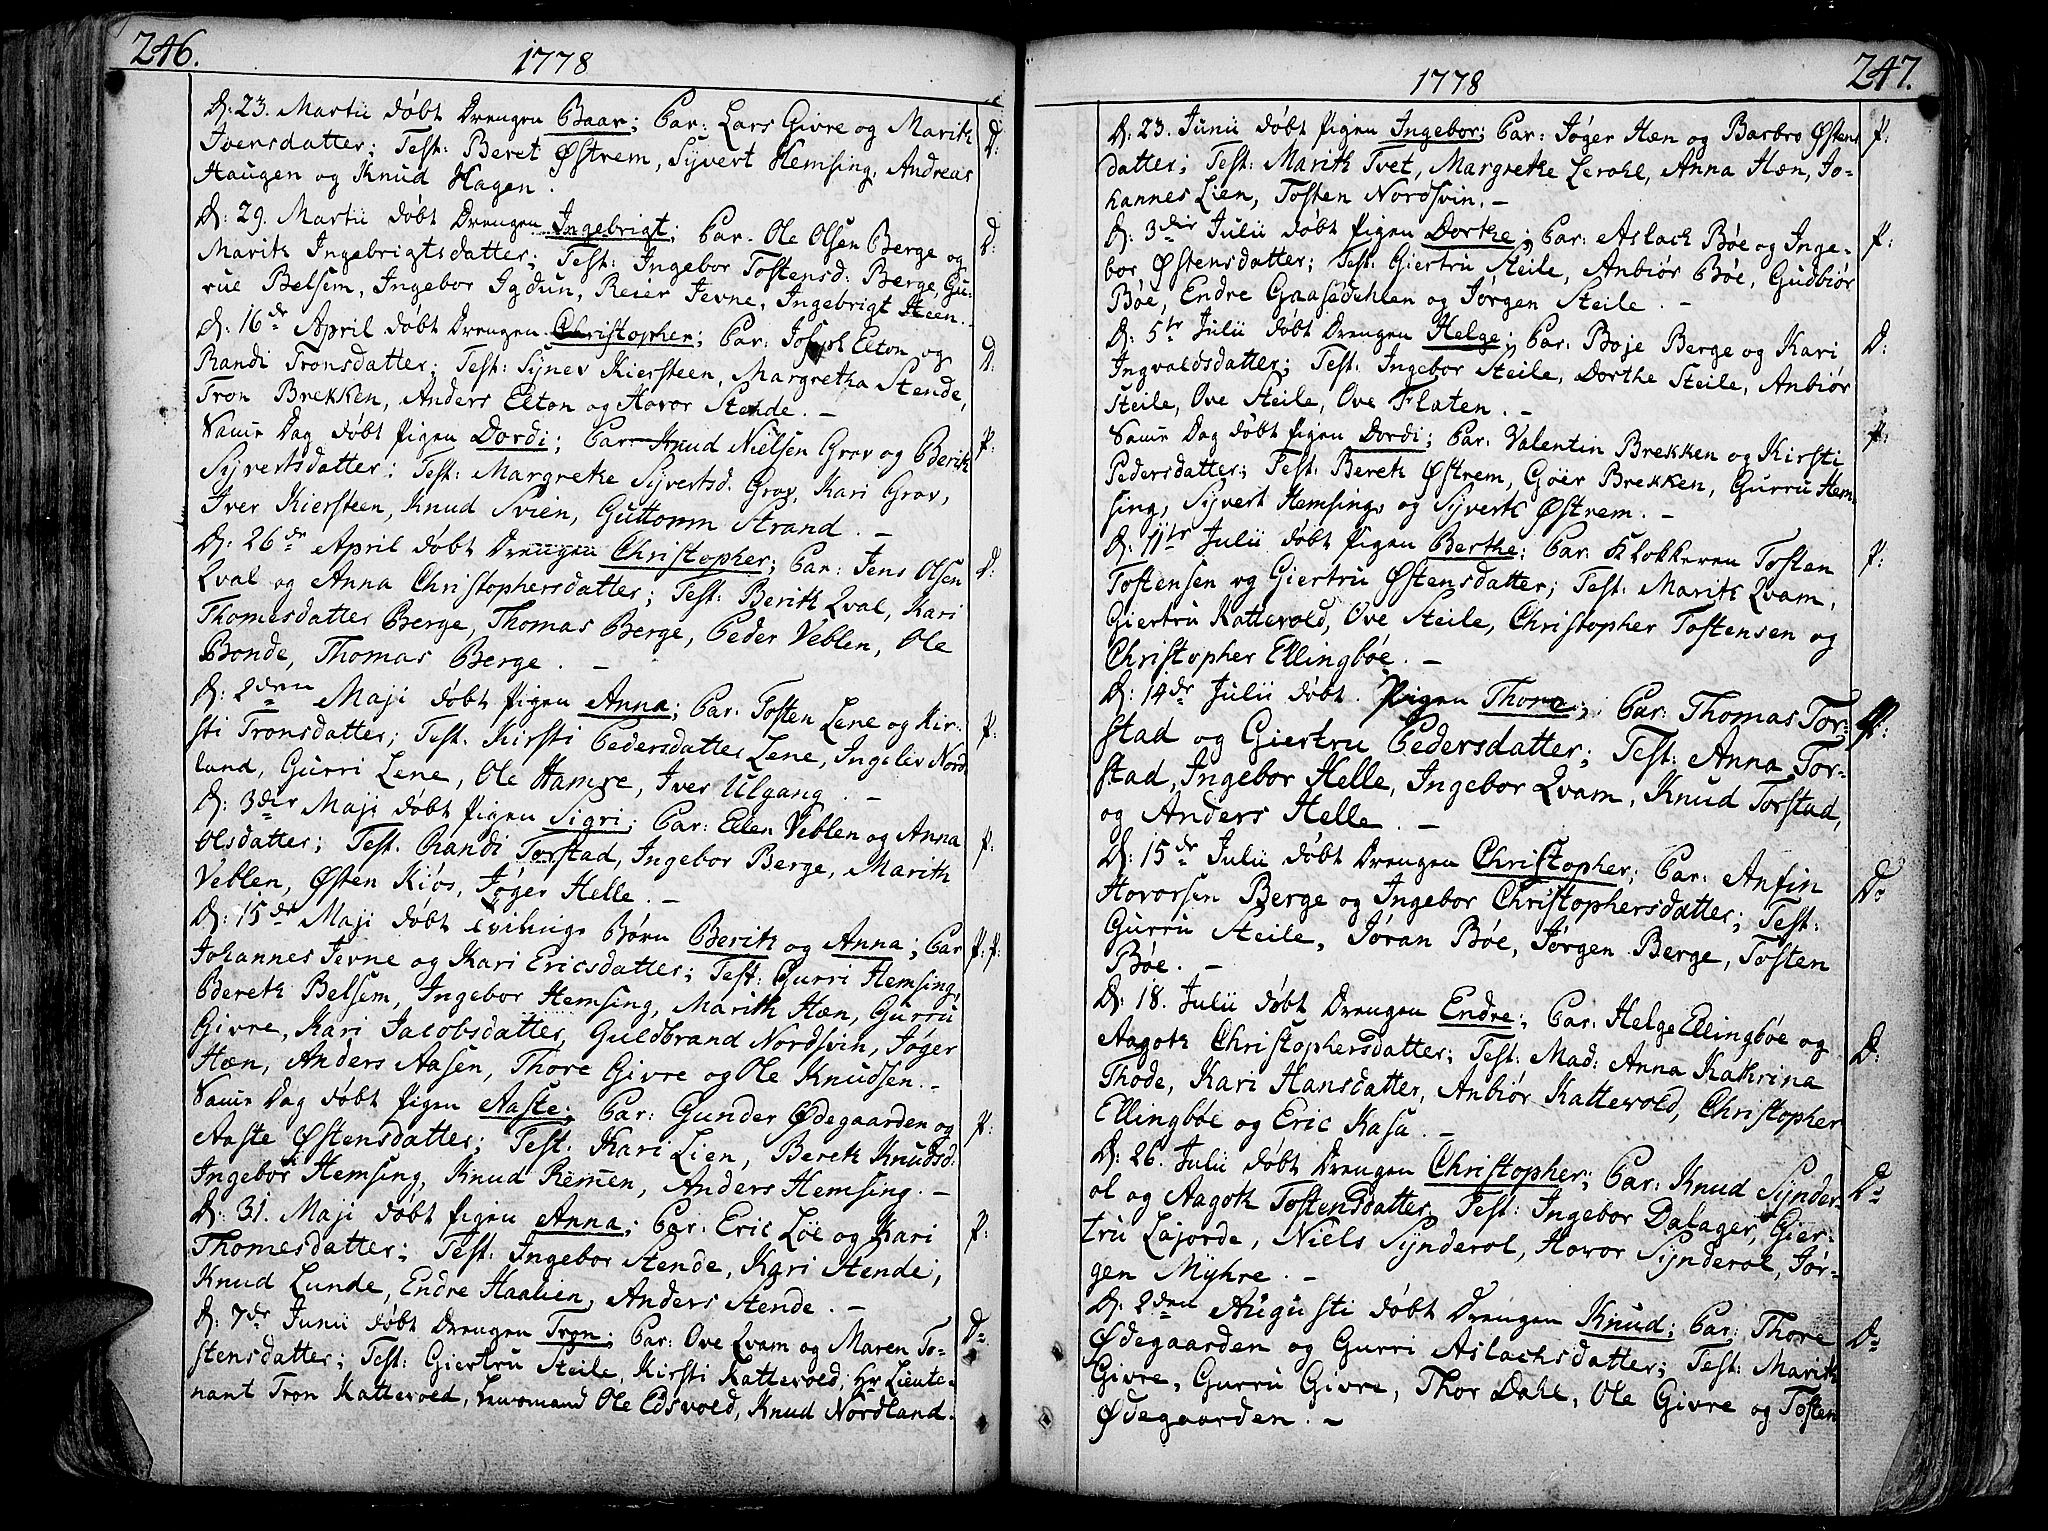 246.
1778
D: 23. Martii døbt Drengen Baar; Par: Lars Givre og Marith D:
Iversdatter; Test: Beret Østrem, Syvert Hemsing, Andreas
Haugen og Knud Hagen.
D: 29. Martii døbt Drengen Ingebrigt; Par. Ole Olsen Berge og D:
Marith Ingebrigtsdatter; Test: Ingebor Tostensd: Berge, Gu-
rue Belsem, Ingebor Igdun, Reier Jevne, Ingebrigt Heen.
D: 16de April døbt Drengen Christopher; Par: Joseph Elton og D:
Randi Tronsdatter; Test: Synev Kiersteen, Margretha Stende,
Tron Brekken, Anders Elton og Hovor Stende. –
Same Dag døbt Pigen Dordi; Par: Knud Nielsen Grov og Berith P:
Syvertsdatter: Test: Margrethe Syvertsd. Grov, Kari Grov,
Iver Kiersteen, Knud Svien, Guttorm Strand. –
D: 26de April døbt Drengen Christopher; Par: Jens Olsen D:
Qval og Anna Christophersdatter; Test: Berith Qval, Kari
Thomesdatter Berge, Thomas Berge, Peder Veblen, Ole
Bonde, Thomas Berge. –
D: 2den Maji døbt Pigen Anna; Par: Tosten Lene og Kir- P:
sti Tronsdatter; Test. Kirsti Pedersdatter Lene, Ingeliv Nord-
land, Gurri Lene, Ole Hamre, Iver Ulgang. –
D: 3die Maji døbt Pigen Sigri; Par: Ellen Veblen og Anna P:
Olsdatter; Test. Randi Torstad, Ingebor Berge, Marith
Veblen, Østen Kiøs, Jøger Helle. –
D: 15de Maji døbt tvilings Børn Berith og Anna; Par P: P:
Johannes Jevne og Kari Ericsdatter; Test: Gurri Hemsing,
Bereth Belsem, Ingebor Hemsing, Marith Hæn, Gurru
Givre, Kari Jacobsdatter, Guldbrand Nordsvin, Jøger
Hæn, Anders Aasen, Thore Givre og Ole Knudsen. –
Same Dag døbt Pigen Aaste; Par: Gunder Ødegaarden og P:
Aaste Østensdatter; Test: Kari Lien, Bereth Knudsd:
Ingebor Hemsing, Knud Remen, Anders Hemsing. –
D: 31. Maji døbt Pigen Anna; Par: Eric Løe og Kari P:
Thomesdatter; Test: Ingebor Stende, Kari Stende,
Knud Lunde, Endre Haalien, Anders Stende. –
D: 7de Junii døbt Drengen Tron; Par: Ove Qvam og Maren To- D:
stensdatter; Test: Giertru Steile, Kirsti Kattevold, Hr Lieute-
nant Tron Kattevold, Ole Edsvold, Knud Nordland.
247.
1778
D: 23. Junii døbt Pigen Ingebor; Par: Jøger Hæn og Barbro Østens P:
datter; Test: Marith Tvet, Margrethe Lerohl, Anna Hæn, Jo-
hannes Lien, Tosten Nordsvin. –
D: 3die Julii døbt Pigen Dorthe; Par: Aslach Bøe og Inge- P:
bor Østensdatter; Test: Giertru Steile, Anbiør Bøe, Gudbiør
Bøe, Endre Gaasedehlen og Jørgen Steile. –
D: 5te Julii døbt Drengen Helge; Par: Boje Berge og Kari D:
Ingvaldsdatter; Test: Ingebor Steile, Dorthe Steile, Anbiør
Steile, Ove Steile, Ove Flaten. –
Same Dag døbt Pigen Dordi; Par: Valentin Brekken og Kirsti P:
Pedersdatter; Test: Bereth Østrem, Gøer Brekken, Gurru Hem-
sing, Syvert Hemsing, og Syverth Østrem. –
D: 11te Julii døbt Pigen Berthe; Par: Klokkeren Tosten P:
Tostensen og Giertru Østensdatter; Test: Marith Qvam,
Giertru Kattevold, Ove Steile, Christopher Tostensen og
Christopher Ellingbøe. –
D: 14de Julii døbt. Pigen Thore; Par: Thomas Tor- P:
stad og Giertru Pedersdatter; Test: Anna Tor-
stad, Ingebor Helle, Ingebor Qvam, Knud Torstad,
og Anders Helle. –
D: 15de Julii døbt Drengen Christopher; Par: Anfin D:
Hovorsen Berge og Ingebor Christophersdatter; Test:
Gurru Steile, Jøran Bøe, Jørgen Berge, Tosten
Bøe. –
D: 18. Julii døbt Drengen Endre; Par: Helge Ellingbøe og D:
Aagoth Christophersdatter; Test: Mad: Anna Kathrina
Thode, Kari Hansdatter, Anbiør Kattevold, Christopher
Ellingbøe og Eric Kasa. –
D: 26. Julii døbt Drengen Christopher; Par: Knud Synder- D:
ol og Aagoth Tostensdatter, Test: Ingebor Dalager, Gier-
tru Lajorde, Niels Synderol, Hovor Synderol, Jør-
gen Myhre. –
D: 2den Augusti døbt Drengen Knud; Par: Thore D:
Ødegaarden og Gurri Aslachsdatter; Test: Marith
Givre, Gurru Givre, Thor Dahl, Ole Givre og Tosten
Ødegaarden. –